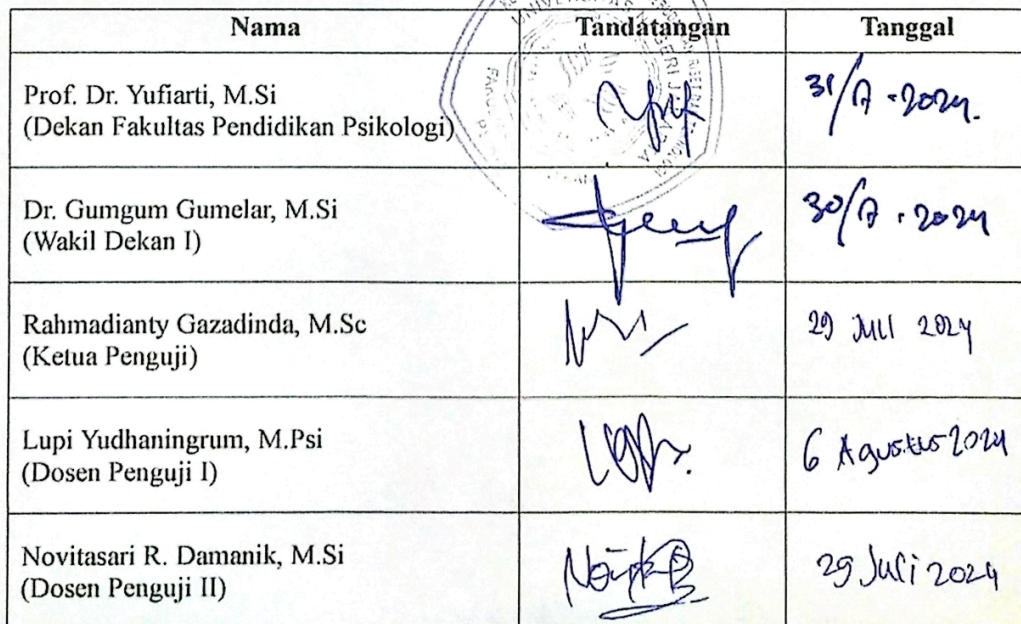 Nama Tandatangan Tanggal
Prof. Dr. Yufiarti, M.Si
(Dekan Fakultas Pendidikan Psikologi)
31/7 - 2024.
Dr. Gumgum Gumelar, M.Si
(Wakil Dekan I)
30/7 - 2024
Rahmadianty Gazadinda, M.Sc
(Ketua Penguji)
29 JULI 2024
Lupi Yudhaningrum, M.Psi
(Dosen Penguji I)
6 Agustus 2024
Novitasari R. Damanik, M.Si
(Dosen Penguji II)
29 Juli 2024